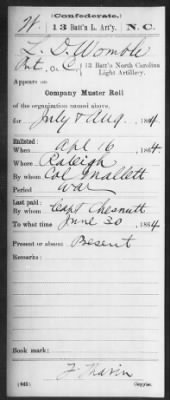 (Confederate.)
W 13 Batt's L. Art'y. N. C.
L. D. Womble
Pvt, Co. C, 13 Batt'n North Carolina
Light Artillery.
Appears on
Company Muster Roll
of the organization named above,
for July & Aug, 1864
Enlisted:
When Apl 16, 1864
Where Raleigh
By whom Col Mallett
Period War
Last paid:
By whom Capt Chesnutt
To what time June 30, 1864
Present or absent Present
Remarks:
Book mark:
(642) Copyist.